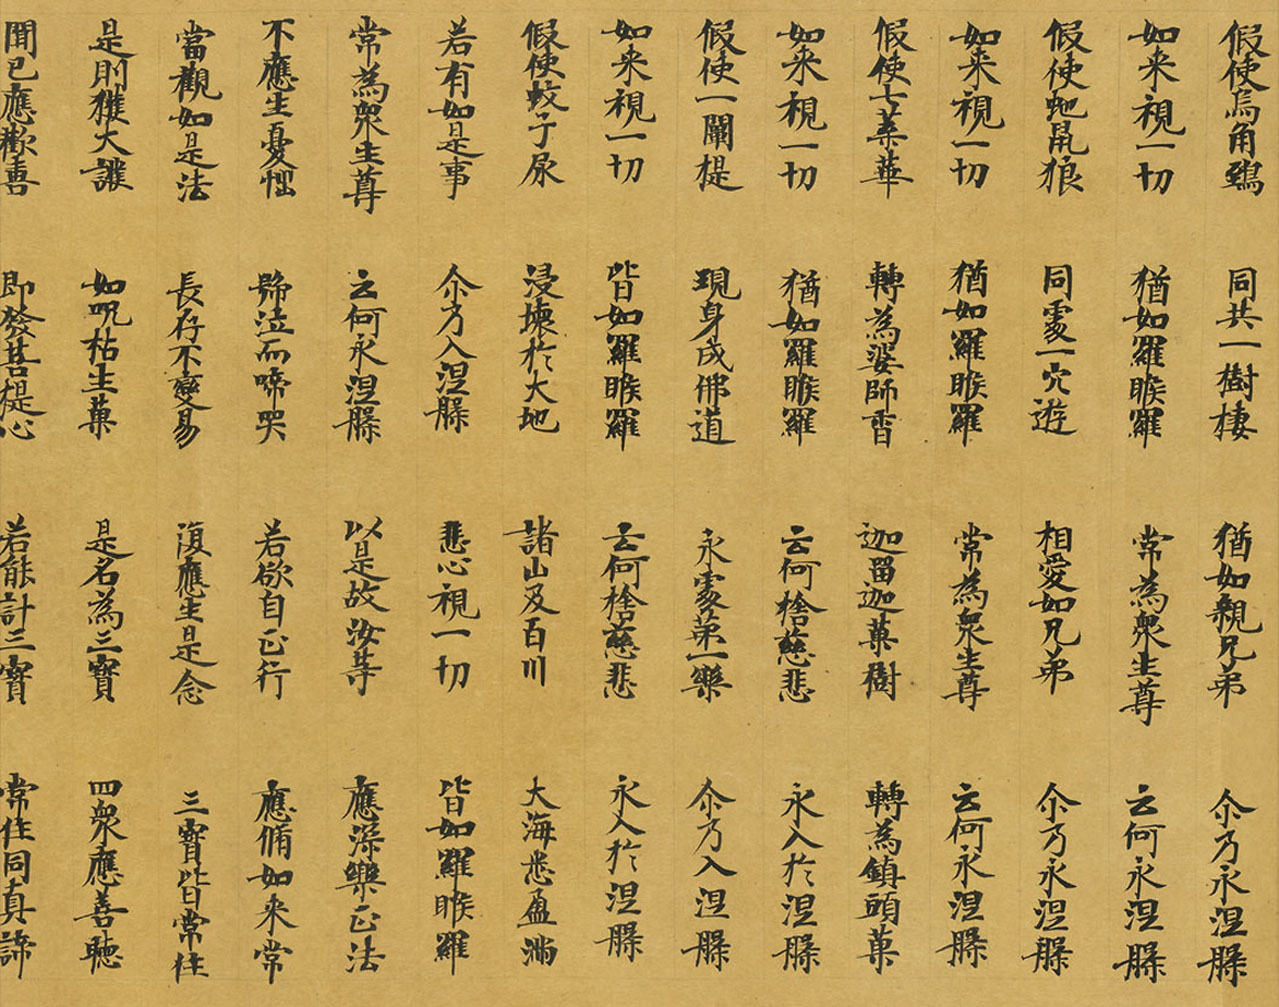 假使烏角鵄 同共一樹棲 猶如親兄弟 尒乃永涅槃
如来視一切 猶如羅睺羅 常為衆生尊 云何永涅槃
假使虵鼠狼 同處一穴遊 相愛如兄弟 尒乃永涅槃
如来視一切 猶如羅睺羅 常為衆生尊 云何永涅槃
假使七葉華 轉為婆師香 迦留迦菓樹 轉為鎮頭菓
如来視一切 猶如羅睺羅 云何捨慈悲 永入於涅槃
假使一闡提 現身成佛道 永處苐一樂 尒乃入涅槃
如来視一切 皆如羅睺羅 云何捨慈悲 永入於涅槃
假使蚊子尿 浸壊於大地 諸山及百川 大海悉盈滿
若有如是事 尒乃入涅槃 悲心視一切 皆如羅睺羅
常為衆生尊 云何永涅槃 以是故汝等 應深樂正法
不應生憂惱 號泣而啼哭 若欲自正行 應脩如来常
當觀如是法 長存不變易 復應生是念 三寶皆常住
是則獲大護 如呪枯生菓 是名為三寶 四衆應善聽
聞已應歡喜 即發菩提心 若能計三寶 常住同真諦